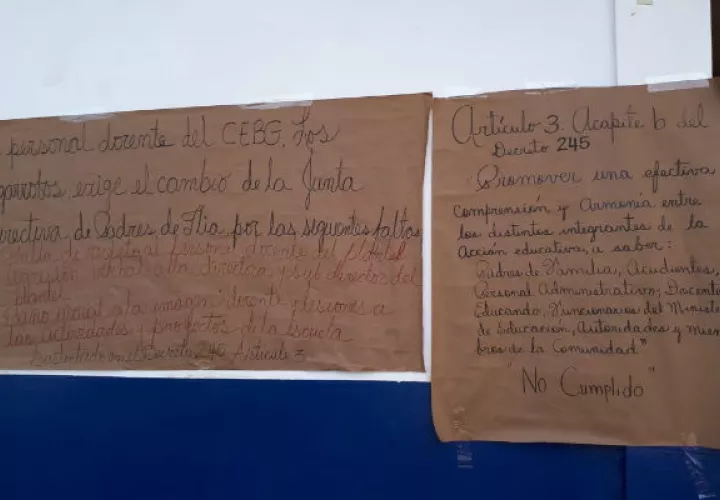 personal docente del CEBG. Los
garrotos, exige el cambio de la Junta
irectiva, de Padres de Flia, por las siguientes faltas
Falta de respeto al personal docente del plantel
Agresión verbal a la directora y sub director del
plantel
Daño moral a la imagen docente y lesiones a
las autoridades y proyectos de la Escuela
en el Decreto 245 Artículo 3
Artículo 3. Acapite b del
Decreto 245
"Promover una efectiva
comprensión y Armonía entre
los distintos integrantes de la
Acción educativa, a saber:
Padres de Familia, Acudientes,
Personal Administrativo, Docente
Educando, Funcionarios del Ministe
de Educación, Autoridades y miem
bros de la Comunidad."
"No Cumplido"